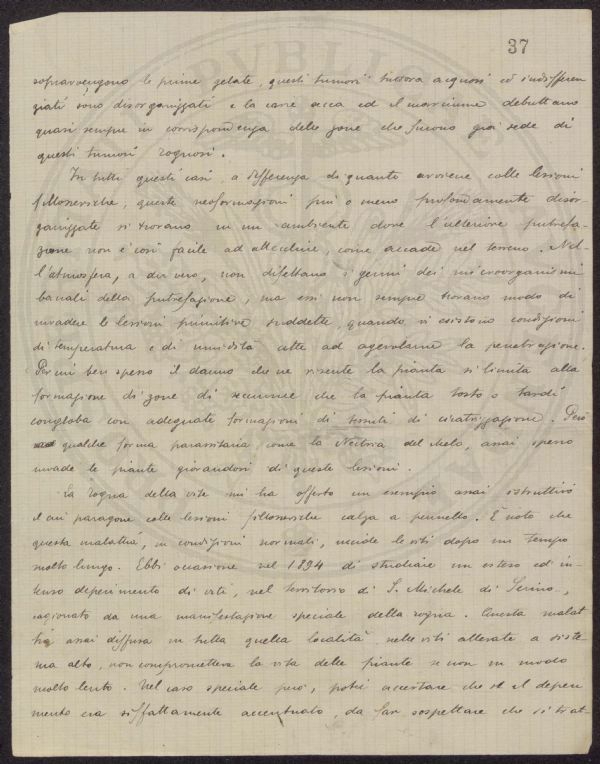 37
sopravvengono le prime gelate, questi tumori tuttora acquosi ed indifferen
ziati sono disorganizzati e la carie secca ed il marciume debuttano
quasi sempre in corrispondenza delle zone che furono già sede di
questi tumori rognosi.
In tutti questi casi a differenza di quanto avviene colle lesioni
fillosseriche, queste neoformazioni più o meno profondamente disor-
ganizzate si trovano in un ambiente dove l'ulteriore putrefa-
zione non è così facile ad attecchire, come accade nel terreno. Nel-
l'atmosfera, a dir vero, non difettano i germi dei microorganismi
banali della putrefazione, ma essi non sempre trovano modo di
invadere le lesioni primitive suddette, quando vi esistono condizioni
di temperatura e di umidità atte ad agevolarne la penetrazione.
Per cui ben spesso il danno che ne risente la pianta si limita alla
formazione di zone di che la pianta tosto o tardi
congloba con adeguate formazioni di tessuti di cicatrizzazione. Però
qualche forma parassitaria come la Nectria del Melo, assai spesso
invade le piante giovandosi di queste lesioni.
La rogna della vite mi ha offerto un esempio assai istruttivo
il cui paragone colle lesioni fillosseriche calza a pennello. È noto che
questa malattia, in condizioni normali, uccide le viti dopo un tempo
molto lungo. Ebbi occasione nel 1894 di studiare un esteso ed in-
tenso deperimento di viti, nel territorio di S. Michele di Serino,
cagionato da una manifestazione speciale della rogna. Questa malat
tia assai diffusa in tutta quella località nelle viti allevate a siste-
ma alto, non comprometteva la vita delle piante se non in modo
molto lento. Nel caso speciale però, potei accertare che se il deperi
mento era siffattamente accentuato, da far sospettare che si trat-